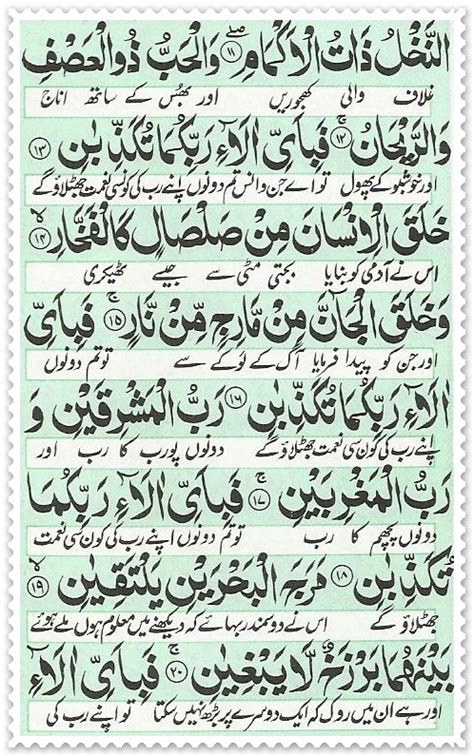 النَّخْلُ ذَاتُ الْاَكْمَامِ ۖ ۝۱۱ وَالْحَبُّ ذُو الْعَصْفِ
غلاف والی کھجوریں اور بھُس کے ساتھ اناج
وَالرَّيْحَانُ ۚ ۝۱۲ فَبِاَىِّ اٰلَآءِ رَبِّكُمَا تُكَذِّبٰنِ ۝۱۳
اور خوشبو کے پھول تو اے جن و انس تم دونوں اپنے رب کی کونسی نعمت جھٹلاؤ گے
خَلَقَ الْاِنْسَانَ مِنْ صَلْصَالٍ كَالْفَخَّارِ ۙ ۝۱۴
اس نے آدمی کو بنایا بجتی مٹی سے جیسے ٹھیکری
وَخَلَقَ الْجَآنَّ مِنْ مَّارِجٍ مِّنْ نَّارٍ ۚ ۝۱۵ فَبِاَىِّ
اور جن کو پیدا فرمایا آگ کے لوکے سے تو تم دونوں
اٰلَآءِ رَبِّكُمَا تُكَذِّبٰنِ ۝۱۶ رَبُّ الْمَشْرِقَيْنِ وَ
اپنے رب کی کون سی نعمت جھٹلاؤ گے دونوں پورب کا رب اور
رَبُّ الْمَغْرِبَيْنِ ۚ ۝۱۷ فَبِاَىِّ اٰلَآءِ رَبِّكُمَا
دونوں پچھم کا رب تو تم دونوں اپنے رب کی کون سی نعمت
تُكَذِّبٰنِ ۝۱۸ مَرَجَ الْبَحْرَيْنِ يَلْتَقِيٰنِ ۙ ۝۱۹
جھٹلاؤ گے اس نے دو سمندر بہائے کہ دیکھنے میں معلوم ہوں ملے ہوئے
بَيْنَهُمَا بَرْزَخٌ لَّا يَبْغِيٰنِ ۚ ۝۲۰ فَبِاَىِّ اٰلَآءِ
اور ہے ان میں روک کہ ایک دوسرے پر بڑھ نہیں سکتا تو اپنے رب کی